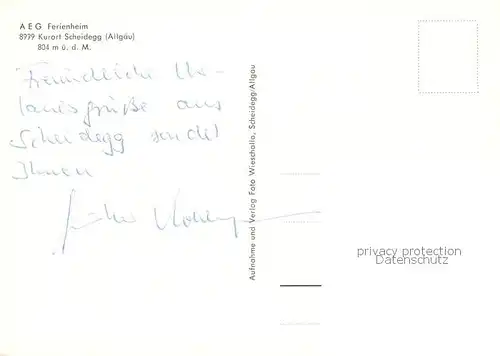 A E G Ferienheim
8999 Kurort Scheidegg (Allgäu)
804 m ü. d. M.
Freundliche Ur-
laubsgrüße aus
Scheidegg sendet
Ihnen
Aufnahme und Verlag Foto Wieschalla, Scheidegg/Allgäu
privacy protection
Datenschutz